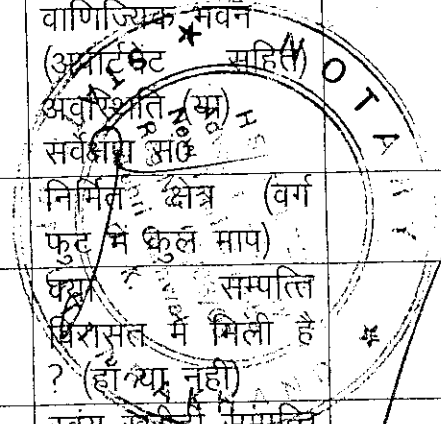 वाणिज्यिक भवन
(अपार्टमेंट सहित)
अवस्थिति (या)
सर्वेक्षण सं०
निर्मित क्षेत्र (वर्ग
फुट में कुल माप)
क्या सम्पत्ति
विरासत में मिली है
? (हाँ या नहीं)
NOTARY